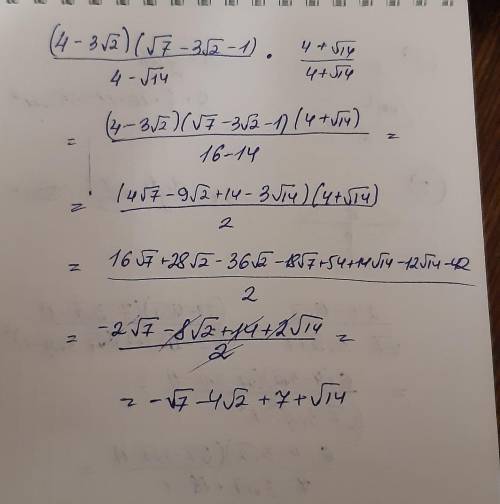 (4 - 3√2)(√7 - 3√2 - 1) / (4 - √14) · (4 + √14) / (4 + √14)
= (4 - 3√2)(√7 - 3√2 - 1)(4 + √14) / (16 - 14) =
= (4√7 - 9√2 + 14 - 3√14)(4 + √14) / 2
= (16√7 + 28√2 - 36√2 - 18√7 + 54 + 14√14 - 12√14 - 42) / 2
= (-2√7 - 8√2 + 14 + 2√14) / 2 =
= -√7 - 4√2 + 7 + √14